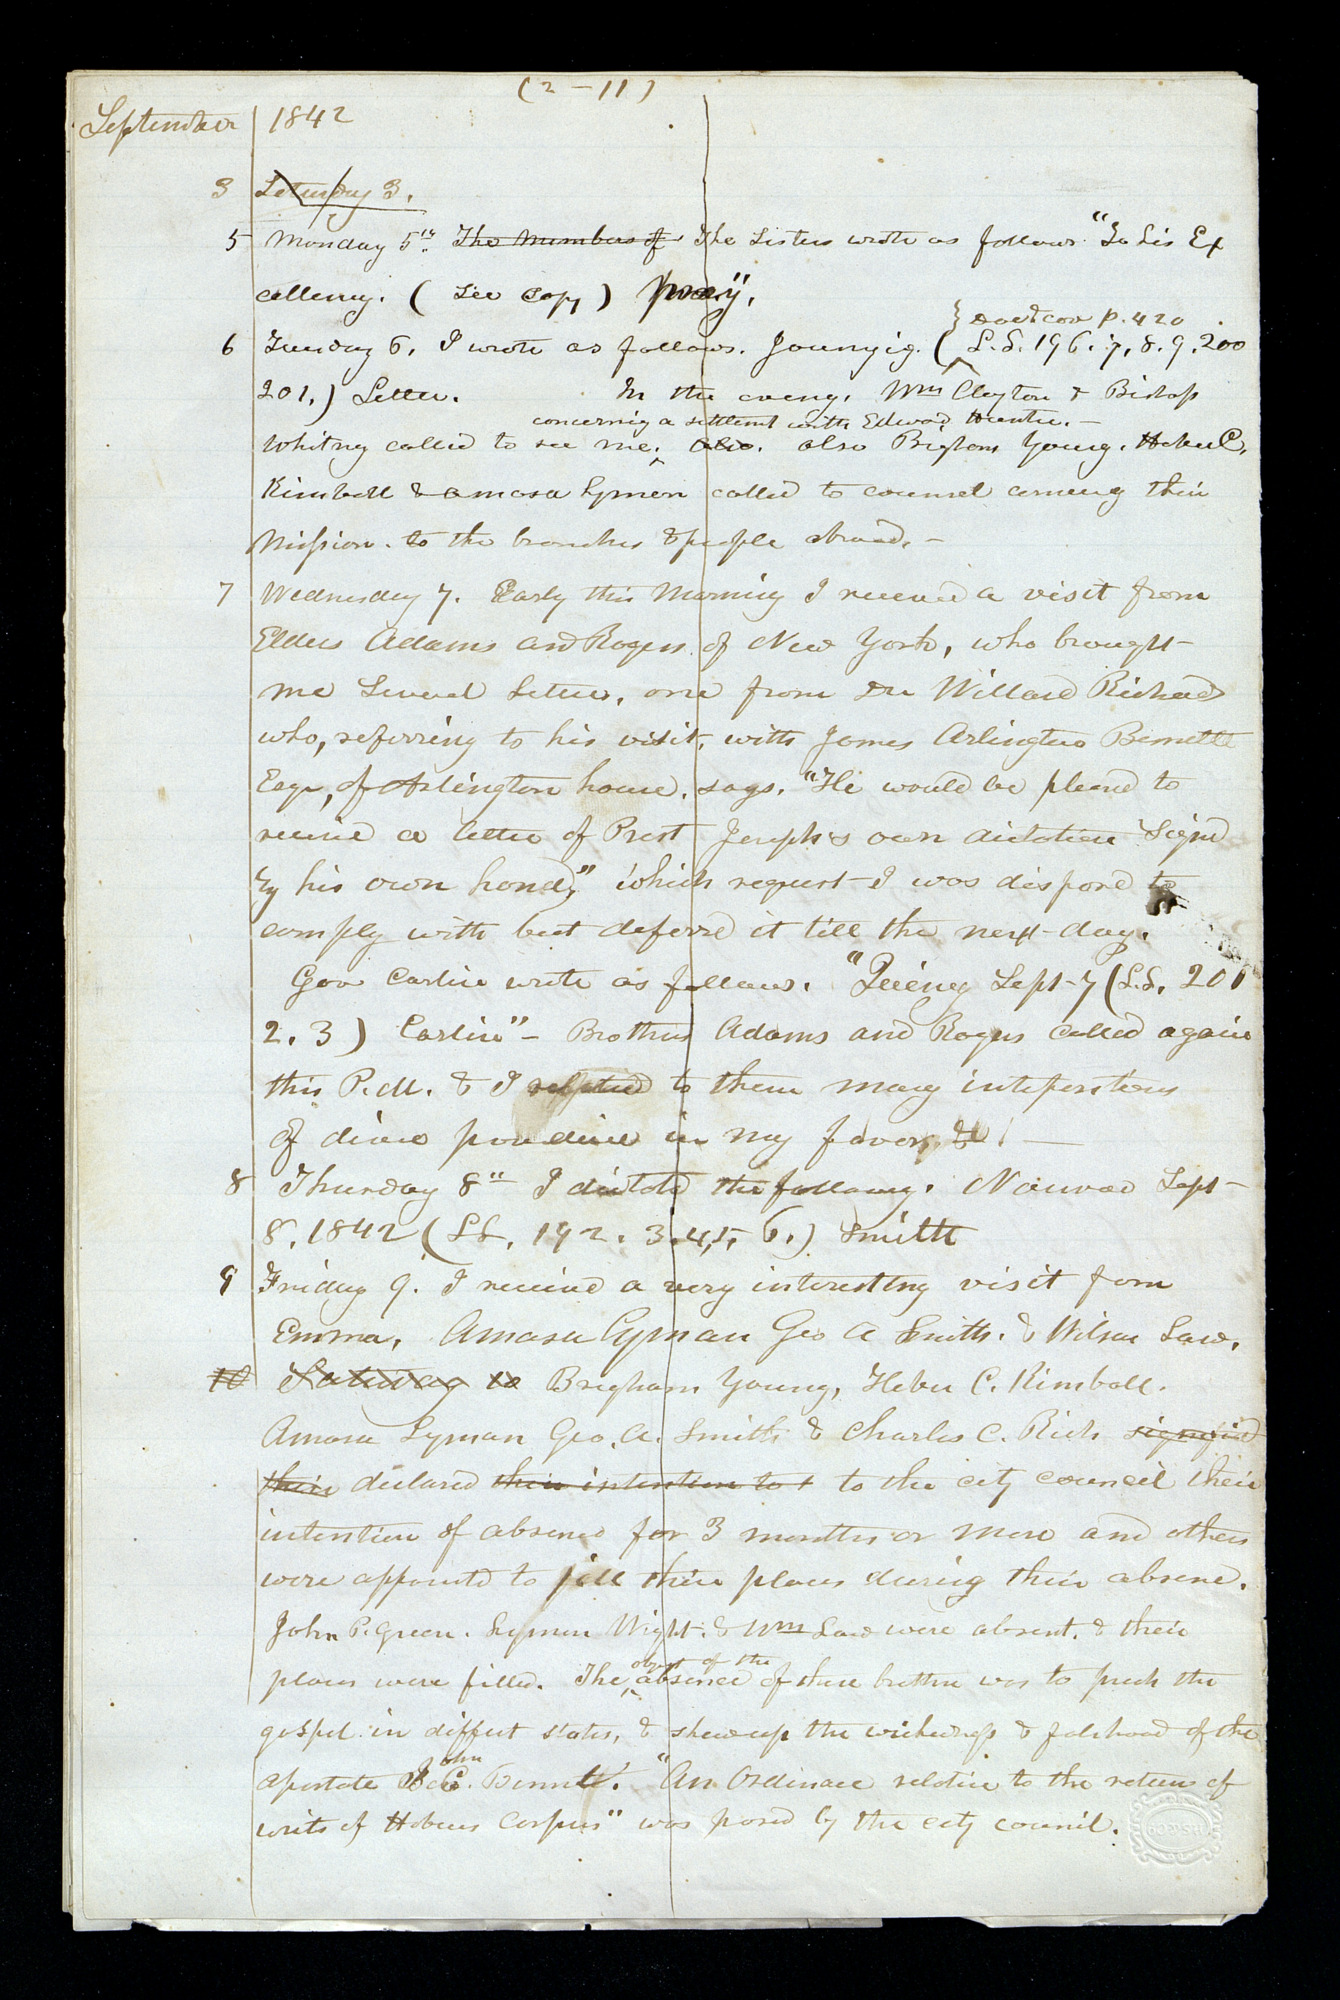 (2-11)
September 1842
3 Saturday 3.
5 Monday 5th. The Members of The Sisters wrote as follows "To his Ex
cellency. ( see copy ) pray",
} Doc & Cov p. 420
6 Tuesday 6. I wrote as follows. Journeying. ( L.S. 196. 7, 8. 9. 200
201.) Letter. In the eveng. Wm Clayton & Bishop
concernig a settlemt with Edward Hunter.-
Whitney called to see me. also. also Brigham Young. Heber C.
Kimball & Amasa Lyman called to counsel cerning their
Mission. to the branches & people abroad.-
7 Wednesday 7. Early this Morning I received a visit from
Elders Adams and Rogers of New York, who brought
me several letters, one from Dr Willard Richards
who, referring to his visit, with James Arlington Bennett
Esqr, of Arlington house. says. "He would be pleased to
receive a letter of Prest Joseph's own dictation signed
by his own hand," which request I was disposed to
comply with but deferred it till the next day.
Gov Carlin wrote as follows. "Quincy Sept 7 (L.S. 201
2. 3 ) Carlin" - Brothers Adams and Rogers called again
this P.M. & I related to them many intepositions
of divine providence in my favor &c —
8 Thursday 8th I dictated the following. Nauvoo Sept
8. 1842 (LS. 192. 3. 4, 5, 6.) Smith
9 Friday 9. I received a very interesting visit from
Emma, Amasa Lyman Geo A Smith. & Wilson Law.
10 Saturday 10 Brigham Young, Heber C. Kimball.
Amasa Lyman Geo. A. Smith & Charles C. Rich signified
their declared their intention to t to the city council their
intention of absence for 3 months or more and others
were appointed to fill their places during their absence.
John P. Green. Lyman Wight. & Wm Law were absent. & their
object of the
places were filled. The absence of these brethren was to preach the
gospel in differt states, & shew up the wickedness & falshood of the
ohn
apostate J C. Bennett. "An Ordinace relative to the return of
writs of Habeus Corpus" was passed by the city council.